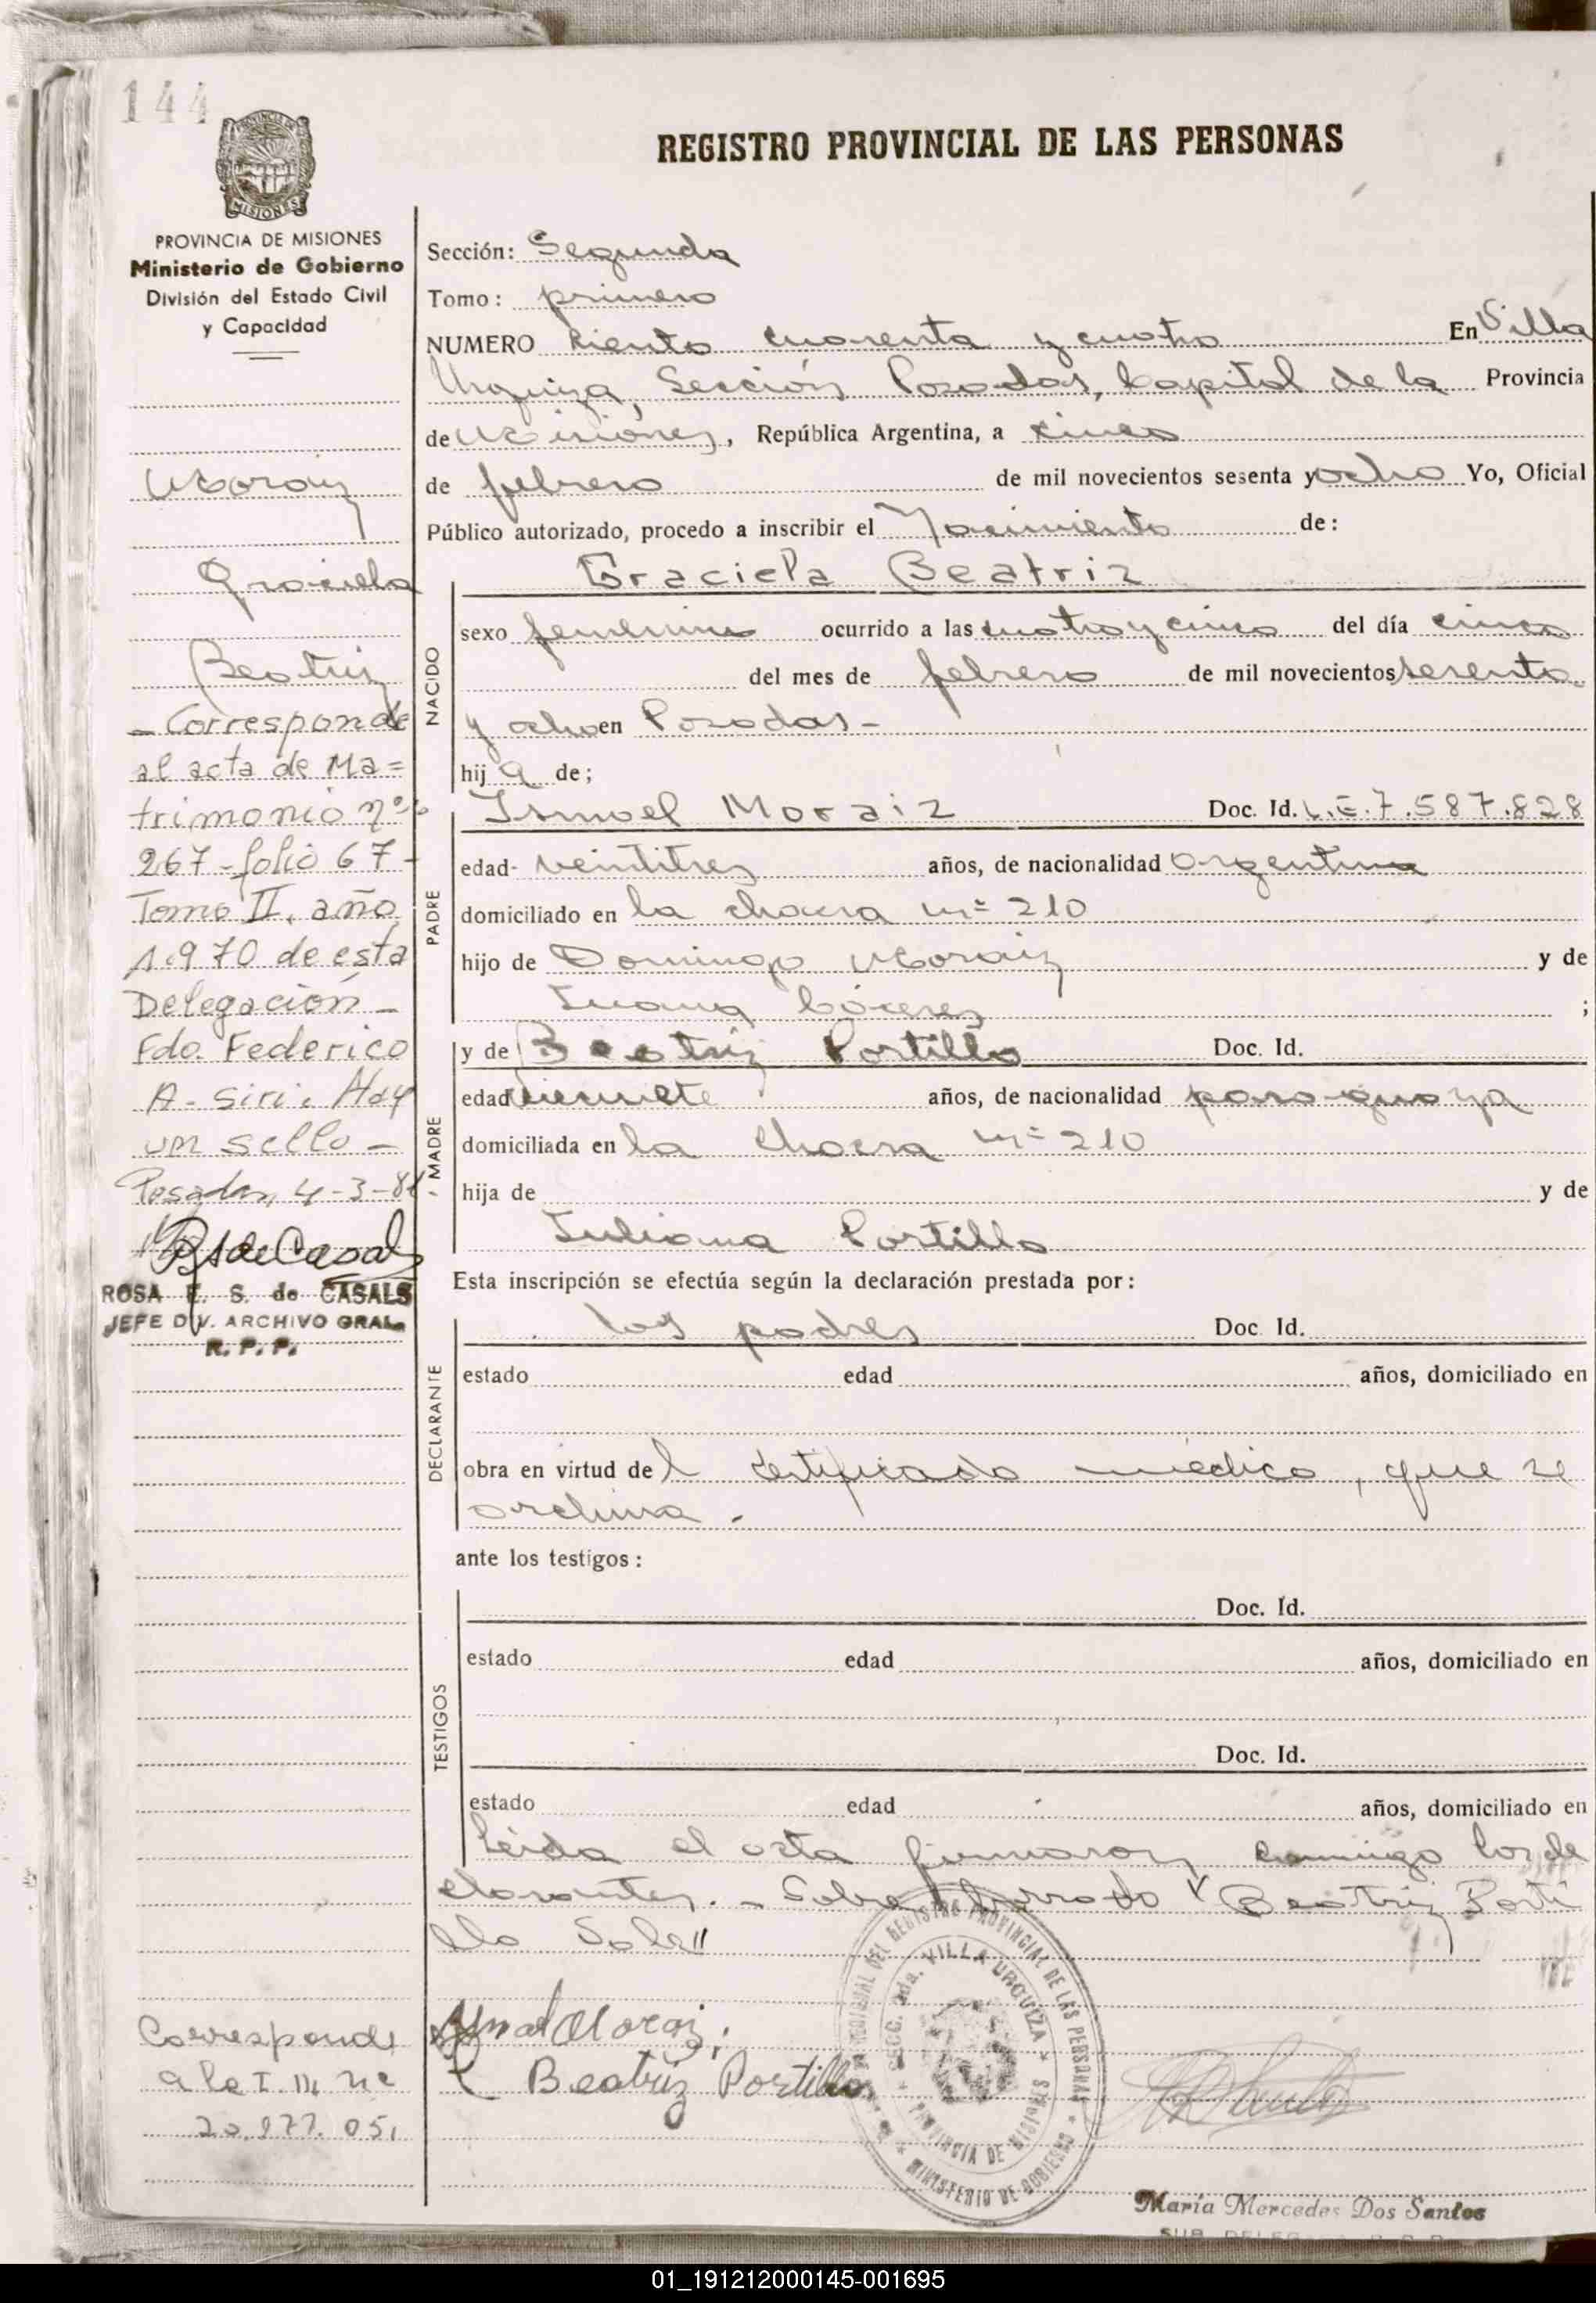 144
REGISTRO PROVINCIAL DE LAS PERSONAS
PROVINCIA DE MISIONES
Ministerio de Gobierno
División del Estado Civil
y Capacidad
Moraiz
Graciela
Beatriz
- Corresponde
al acta de Ma=
trimonio nº
267 - folio 67 -
Tomo II, año
1.970 de esta
Delegación -
Fdo. Federico
A. Siri. Hay
un sello -
Posadas, 4-3-8
ROSA E. S. de CASALS
JEFE DIV. ARCHIVO GRAL.
R. P. P.
Corresponde
20.977.051
Sección: Segunda
Tomo: primero
NUMERO ciento cuarenta y cuatro En Villa
Urquiza, Sección Posadas, Capital de la Provincia
de Misiones, República Argentina, a cinco
de febrero de mil novecientos sesenta y ocho Yo, Oficial
Público autorizado, procedo a inscribir el Nacimiento de:
NACIDO
Graciela Beatriz
sexo femenino ocurrido a las cuatro y cinco del día cinco
del mes de febrero de mil novecientos sesenta
y ocho en Posadas-
hija de;
PADRE
Ismael Moraiz Doc. Id. L.E. 7.587.828
edad veintitres años, de nacionalidad argentina
domiciliado en la chacra nº 210
hijo de Domingo Moraiz y de
Juana Cáceres ;
MADRE
y de Beatriz Portillo Doc. Id.
edad años, de nacionalidad paraguaya
domiciliada en la chacra nº 210
hija de y de
Juliana Portillo
Esta inscripción se efectúa según la declaración prestada por:
DECLARANTE
los padres Doc. Id.
estado edad años, domiciliado en
obra en virtud del certificado médico, que se
archiva.
ante los testigos:
TESTIGOS
Doc. Id.
estado edad años, domiciliado en
Doc. Id.
estado edad años, domiciliado en
Leida el acta firmaron conmigo los de
clarantes. - Sobre borrado "Beatriz Porti
llo Vale"
Beatriz Portillo
REGISTRO PROVINCIAL DE LAS PERSONAS
SECC. 2da. VILLA URQUIZA
PROVINCIA DE MISIONES
MINISTERIO DE GOBIERNO
María Mercedes Dos Santos
01_191212000145-001695